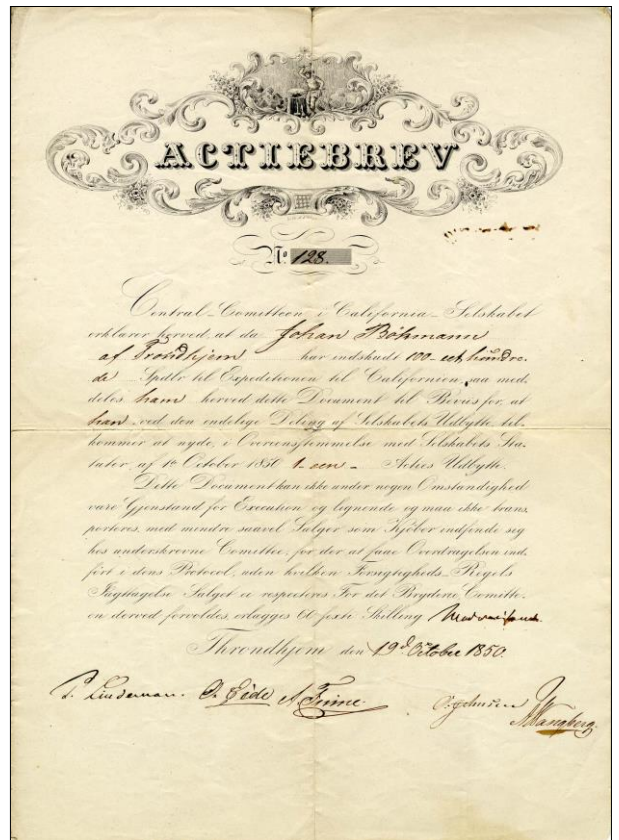 ACTIEBREV
No 128.
Central-Comitteen i California-Selskabet
erklærer herved, at da Johan Böhmann
af Trondhjem har indskudt 100-eet hundre-
de Spdlr til Expeditionen til Californien, saa med-
deles ham herved dette Document til Beviis for, at
han ved den endelige Deling af Selskabets Udbytte, til-
kommer at nyde, i Overeensstemmelse med Selskabets Sta-
tuter af 1ste October 1850 1-een- Acties Udbytte.
Dette Document kan ikke under nogen Omstændighed
være Gjenstand for Execution og lignende og maa ikke trans-
porteres, med mindre saavel Sælger som Kjöber indfinde sig
hos underskrevne Comittee, for der at faae Overdragelsen ind-
fört i dens Protocol, uden hvilken Forsigtigheds-Regels
Iagttagelse Salget ei respecteres. For det Bryderie Comitte-
en derved forvoldes, erlægges 60 sexti Skilling
Throndhjem den 19d October 1850.
P. Lindeman. O. Eide A. Finne. O. Johnsen
A. Wangberg.